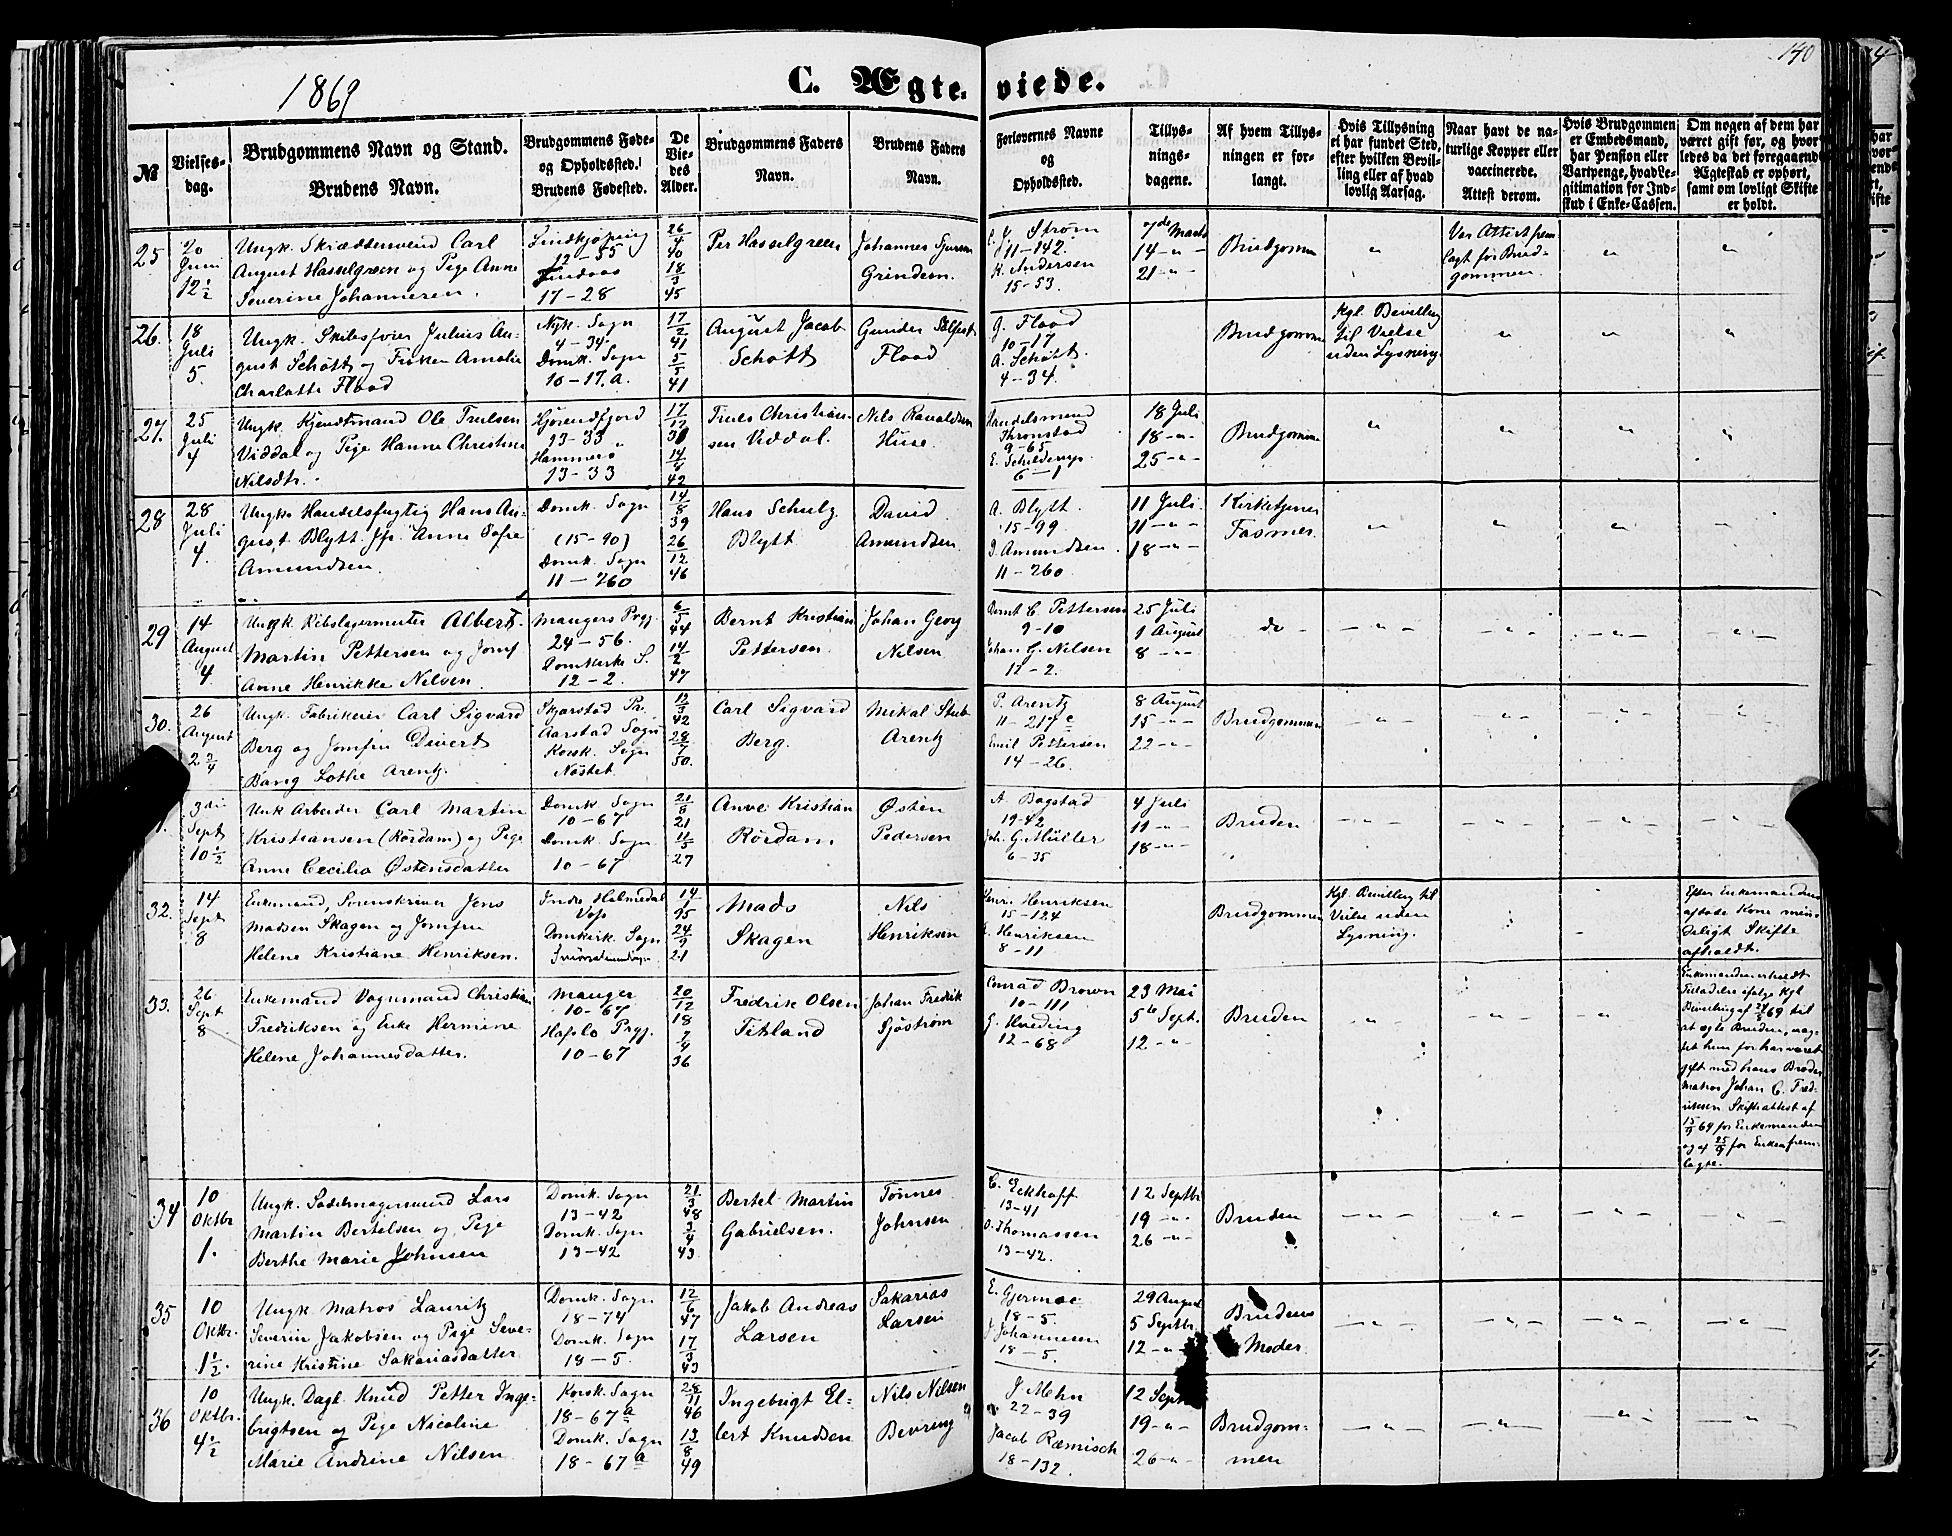 1869
C. Ægte-viede.
140
№
Vielses-
dag.
Brudgommens Navn og Stand.
Brudens Navn.
Brudgommens Føde-
og Opholdssted.
Brudens Fødested.
De
Vie-
des
Alder.
Brudgommens Faders
Navn.
Brudens Faders
Navn.
Forlovernes Navne
og
Opholdssted.
Tillys-
nings-
dagene.
Af hvem Tillys-
ningen er for-
langt.
Hvis Tillysning
ei har fundet Sted,
efter hvilken Bevil-
ling eller af hvad
lovlig Aarsag.
Naar havt de na-
turlige Kopper eller
vaccinerede.
Attest derom.
Hvis Brudgommen
er Embedsmand,
har Pension eller
Vartpenge, hvad Le-
gitimation for Ind-
skud i Enke-Cassen.
Om nogen af dem har
været gift før, og hvor-
ledes da det foregaaende
Ægteskab er ophørt,
samt om lovligt Skifte
er holdt.
25
20
Juni
12 1/2
Ungk. Skræddersvend Carl
August Hasselgreen og Pige Anne
Severine Johannesen.
Lindkjøping
12-55
Lindaas
17-28
26/4 40
18/3 45
Per Hasselgreen
Johannes
Grindem.
Strøm
11-142.
K. Andersen
15-53.
7de Marts
14-"-
21-"-
Brudgommen
"
Var Attest frem
lagt for Brud-
gommen.
"
"
26.
18
Juli
5.
Ungk. Skibsfører Julius Au-
gust Schøtt og Frøken Amalia
Charlotte Flood
Nyk. Sogn
4-34
Domk. Sogn
10-17.a.
17/2 41
5/5 41
August Jacob
Schøtt
Gunder
Flood
G. Flood
10-17
A. Schøtt.
4-34.
Brudgommen
Kgl. Bevilling
til Vielse
uden Lysning.
"
"
"
27.
25
Juli
4
Ungk. Ole Trulsen
Viddal og Pige Hanne Christine
Nilsdtr.
Hjørendfjord
23-33
Hammers
23-33
17/12
14/4 42
Truls Christian-
sen Viddal.
Nils
Huse.
Handelsmand
Thronstad
9-65
E. Schilderup.
6-1
18 Juli
18-"-
25-"-
Brudgommen
"
"
"
"
28
28
Juli
4.
Ungk. Handelsfugtig Hans Au-
gust Blytt Jfr. Anne Sofie
Amundsen.
Domk. Sogn
(15-90)
Domk. Sogn
11-260
14/8 39
26/12 46
Hans Schulz
Blytt
David
Amundsen.
A. Blytt.
15-99.
D. Amundsen.
11-260.
11 Juli.
11-"-
18-"-
Kirketjener
Fasmer.
"
"
"
"
29
14
August
4
Ungk. Rebslagermester Albert
Martin Pettersen og Jomf
Anne Henrikke Nilsen.
Mangers Prgj.
24-56.
Domkirk. S.
12-2.
6/5 44
14/2 47
Bernt Kristian
Pettersen.
Johan Georg
Nilsen
Bernt C. Pettersen
9-10
Johan G. Nilsen
12-2.
25 Juli
1 August
8-"-
do
-"-
-"-
-"-
-"-
30.
26
August
2 3/4
Ungk. Fabrikeier Carl Sigvard
Berg og Jomfru Divert
Bang Lothe Arentz.
Skjærstad Pr.
Aarstad Sogn
Korsk. Sogn
Nøstet.
12/3 42
28/7 50.
Carl Sigvard
Berg.
Mikal Stub
Arentz
P. Arentz
11-217 c
Emil Pettersen
14-26.
8 August
15-"-
22-"-
Brudgommen
-"-
-"-
-"-
-"-
1.
3die
Sept
10 1/2
Unk Arbeider Carl Martin
Kristiansen (Rördam) og Pige
Anne Cecilia Østensdatter
Domk. Sogn
10-67
Domk. Sogn
10-67
21/8 21
11/5 27
Anve Kristian
Rördam
Østen
Pedersen
A. Bagstad
19-42
Joh. G. Müller
6-35
4 Juli
11-"-
18-"-
Bruden
-"-
-"-
-"-
-"-
32.
14
Sept
8
Enkemand, Sorenskriver Jens
Madsen Skagen og Jomfru
Helene Kristiane Henriksen.
Indre Holmedal
Vos
Domkirk. Sogn
14/ 95
24/9 21
Mads
Skagen
Nils
Henriksen
Henr. Henriksen
15-124
Henriksen
8-11
Brudgommen
Kgl. Bevilling til
Vielse uden
Lysning.
Efter Enkemandens
afdøde Kone min-
deligt Skifte
afholdt.
33.
26
Sept
8
Enkemand Vognmand Christian
Fredriksen og Enke Hermine
Helene Johannesdatter.
Manger
10-67
Hafslo Prgj.
10-67
20/12 18
7/4 36
Fredrik Olsen
Titland
Johan Fredrik
Sjöström
Conrad Brown
10-111
G. Hveding
12-68
23 Mai
5te Sept.
12-"-
Bruden
"
"
"
Enkemanden erholdt
Tilladelse ifølge Kgl
Bevilling af 69 til
at ægte Bruden, uag-
tet hun før har været
gift med hans Broder
Matros Johan C. Fred-
riksen. Skifteattest af
15/9 69 for Enkemanden
og af 25/9 for Enken frem-
lagte.
34
10
Oktbr
1.
Ungk. Sadelmagersvend Lars
Martin Bertelsen og Pige
Berthe Marie Johnsen
Domk. Sogn
13-42
Domk. Sogn
13-42
21/3 48
3/4 43
Bertel Martin
Gabrielsen.
Tønnes
Johnsen
C. Eckhoff
13-41
O. Thomassen
13-42.
12 Septbr
19-"-
26-"-
Bruden
-"-
-"-
-"-
-"-
35
10
Oktbr.
1 1/2.
Ungk. Matros Lauritz
Severin Jakobsen og Pige Seve-
rine Kristine Sakariasdatter
Domk. Sogn
18-74
Domk. Sogn
18-5.
12/6 47
17/3 43
Jakob Andreas
Larsen
Sakarias
Larsen
E. Gjermoe
18-5.
J. Johannesen
18-5.
29 August
5 Septbr.
12-"-
Brudens
Moder
-"-
-"-
-"-
-"-
36
10
Oktbr.
4 1/2
Ungk. Dagl. Knud Petter Inge-
brigtsen og Pige Nicoline
Marie Andrine Nilsen
Korsk. Sogn
18-67a
Domk. Sogn
18-67a
28/11 46
13/8 49
Ingebrigt El-
lert Knudsen
Nils Nilsen
Bevring
J. Mehn
22-39
Jacob Ræmisch
18-132.
12 Sept
19-"-
26-"-
Brudgom-
men
-"-
-"-
-"-
-"-